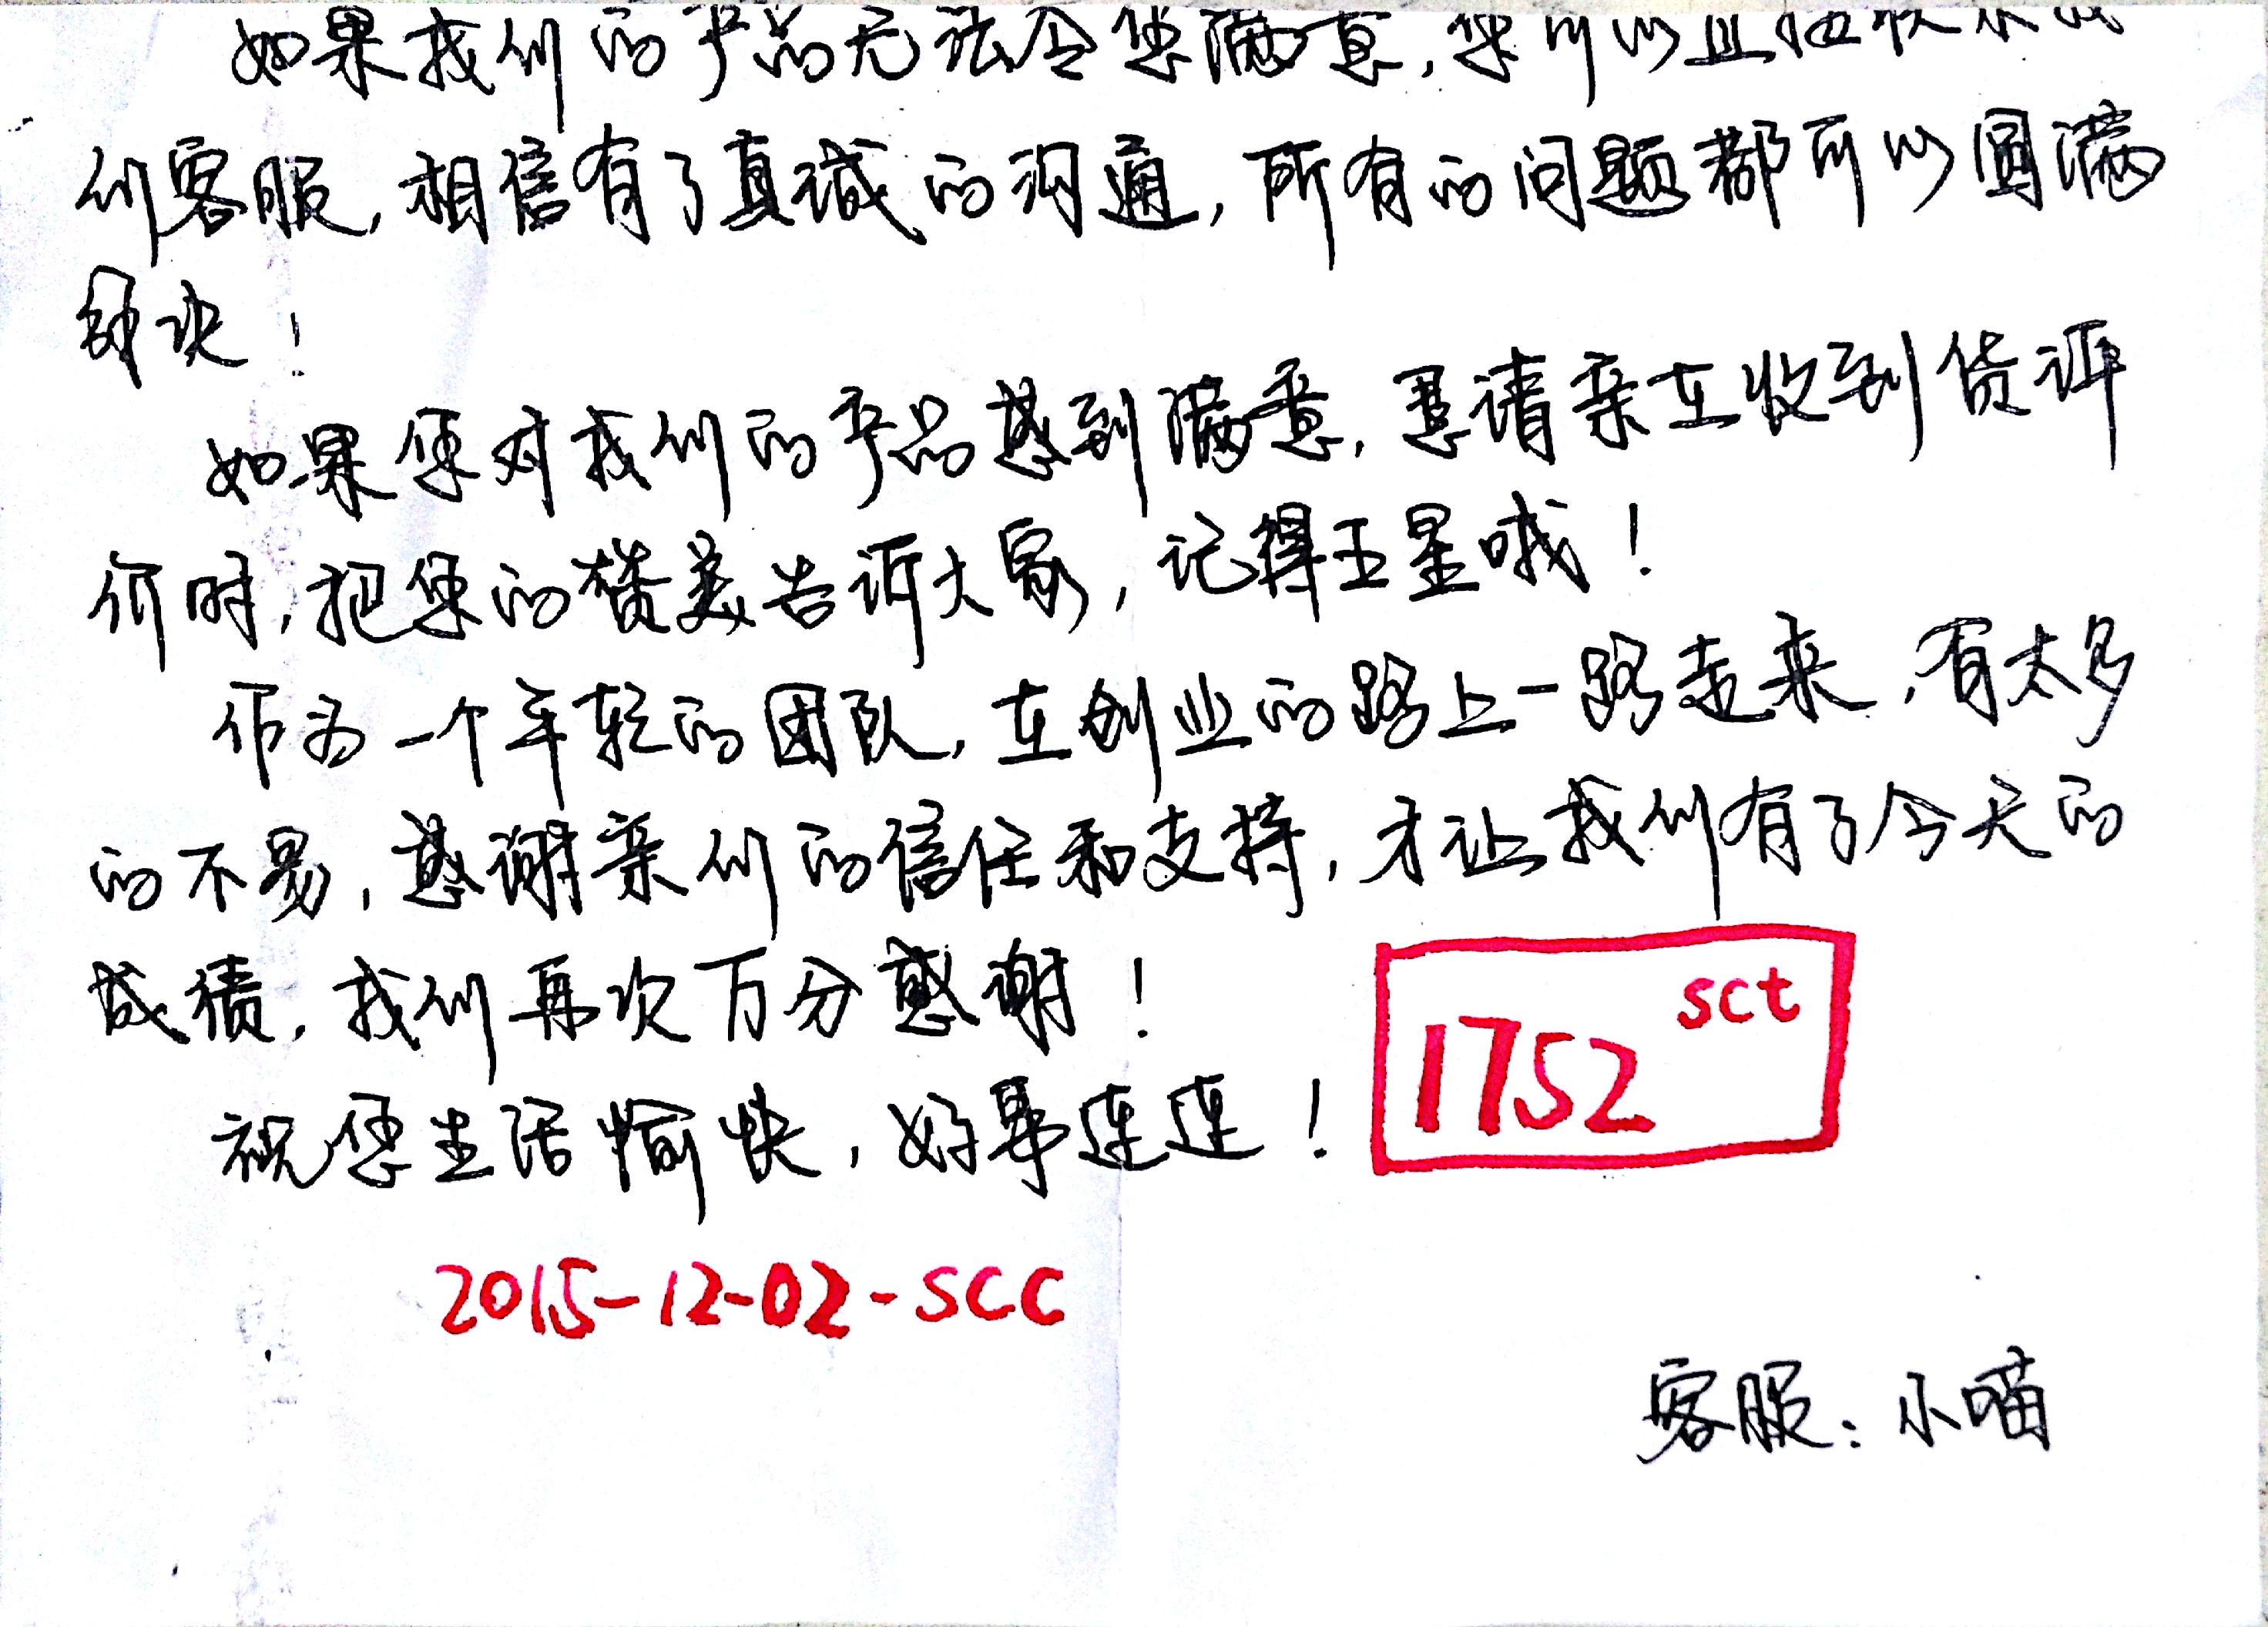 如果我们的产品无法令您满意,您可以直接联系我
们客服,相信有了真诚的沟通,所有的问题都可以圆满
解决!
如果您对我们的产品感到满意,恳请亲在收到货评
价时,把您的赞美告诉大家,记得五星哦!
作为一个年轻的团队,在创业的路上一路走来,有太多
的不易,感谢亲们的信任和支持,才让我们有了今天的
成绩,我们再次万分感谢!
sct
1752
祝您生活愉快,好事连连!
2015-12-02-SCC
客服:小喵